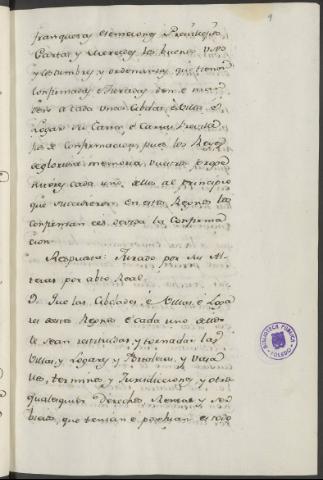 9
franquezas esempciones Previlegios
Cartas y Mercedes los buenos usos
y costumbres y ordenanzas, que tienen
confirmadas e Juradas den e man
den a cada una Cibdat, e Villa e
Logar su Carta e Cartas Preville
jios de Confirmacion, pues los Reyes
de gloriosa memoria, vuestros proge
nitores cada uno dellos al principio
que subcedieron en estos Regnos les
la Confirma
cion.
Respuesta: Jurado por su Al-
teza por abto Real.
Que las Cibdades, é Villas, é Loga
res destos Regnos é cada uno dellos
le sean restituidas y tornadas las
Villas, y Logares y Fortalezas, y vasa
llos, terminos y Jurisdicciones y otros
qualesquier Derechos, Rentas y
que tenian e poseían
BIBLIOTECA PUBLICA
TOLEDO